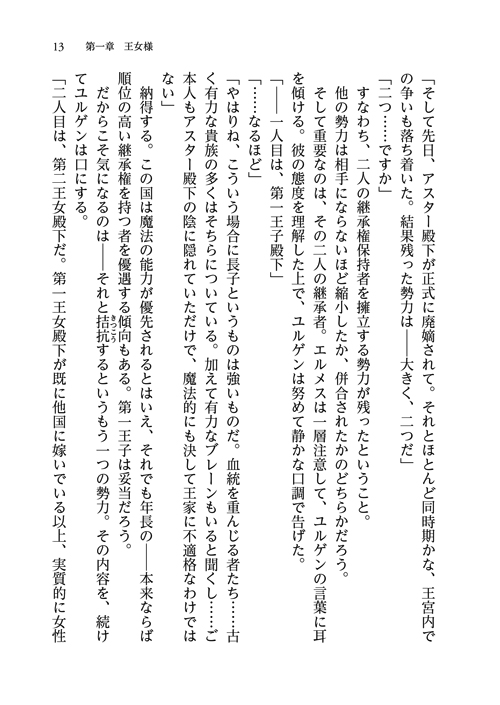 13　第一章　王女様
「そして先日、アスター殿下が正式に廃嫡されて。それとほとんど同時期かな、王宮内で
の争いも落ち着いた。結果残った勢力は――大きく、二つだ」
「二つ……ですか」
　すなわち、二人の継承権保持者を擁立する勢力が残ったということ。
　他の勢力は相手にならないほど縮小したか、併合されたかのどちらかだろう。
　そして重要なのは、その二人の継承者。エルメスは一層注意して、ユルゲンの言葉に耳
を傾ける。彼の態度を理解した上で、ユルゲンは努めて静かな口調で告げた。
「――一人目は、第一王子殿下」
「……なるほど」
「やはりね、こういう場合に長子というものは強いものだ。血統を重んじる者たち……古
く有力な貴族の多くはそちらについている。加えて有力なブレーンもいると聞くし……ご
本人もアスター殿下の陰に隠れていただけで、魔法的にも決して王家に不適格なわけでは
ない」
　納得する。この国は魔法の能力が優先されるとはいえ、それでも年長の――本来ならば
順位の高い継承権を持つ者を優遇する傾向もある。第一王子は妥当だろう。
　だからこそ気になるのは――それと拮抗（きっこう）するというもう一つの勢力。その内容を、続け
てユルゲンは口にする。
「二人目は、第二王女殿下だ。第一王女殿下が既に他国に嫁いでいる以上、実質的に女性